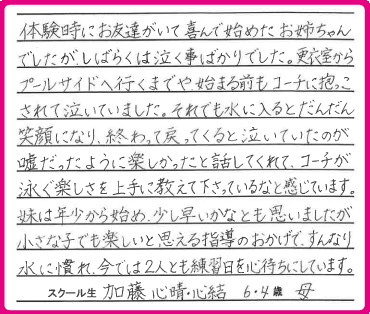 体験時にお友達がいて喜んで始めたお姉ちゃん
でしたが、しばらくは泣く事ばかりでした。更衣室から
プールサイドへ行くまでや、始まる前もコーチに抱っこ
されて泣いていました。それでも水に入るとだんだん
笑顔になり、終わって戻ってくると泣いていたのが
嘘だったように楽しかったと話してくれて、コーチが
泳ぐ楽しさを上手に教えて下さっているなと感じています。
妹は年少から始め、少し早いかなとも思いましたが
小さな子でも楽しいと思える指導のおかげで、すんなり
水に慣れ、今では2人とも練習日を心待ちにしています。
スクール生 加藤 心晴・心結 6・4歳 母